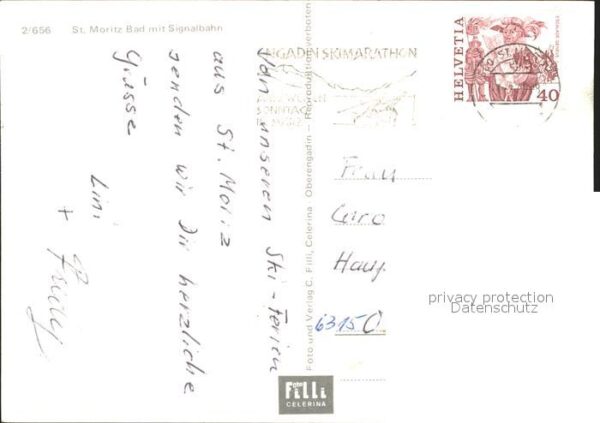 2/656 St. Moritz Bad mit Signalbahn
Von unseren Ski-Ferien
aus St. Moriz
senden wir Dir herzliche
Grüsse
Lini
+
Foto und Verlag C. Filli, Celerina - Oberengadin - Reproduktion verboten
Foto
Filli
CELERINA
ENGADIN SKIMARATHON
SONNTAG
HELVETIA
40
Frau
Caro
Hauf
6315 O
privacy protection
Datenschutz